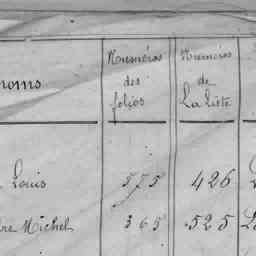 noms
Numéros
des
folios
Numéros
de
La Liste
Louis 575 426
Michel 365 525